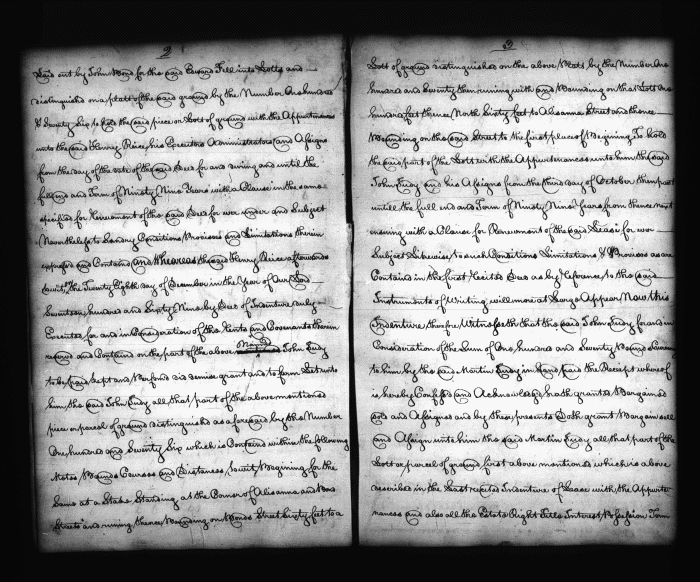 2
Laid out by John Bond for the said Edward Fell into Lotts and
distinguished on a platt of the said ground by the Number One hundred
& Seventy Six to hold the said piece or Lott of ground with the Appurtenances
unto the said Henry Rice his Executors Administrators and Assigns
from the day of the date of the said Deed for and during and until the
full end and Term of Ninety Nine Years with a Clause in the same
specified for Renewment of the said Deed for ever under and Subject
Nevertheless to Sundry Conditions Provisoes and Limitations therein
expressed and Contained and Whereas the said Henry Rice afterwards
towit, the Twenty Eighth day of December in the Year of Our Lord
Seventeen hundred and Sixty Nine by Deed of Indenture duly
Executed for and in Consideration of the Rents and Covenants therein
reserved and Contained on the part of the above Named John Judy
to be paid kept and Perford did demise grant and to farm Let unto
him the said John Judy all that part of the above mentioned
piece or parcel of ground distinguished as aforesaid by the Number
One hundred and Seventy Six which is Contained within the following
Metes Bounds Courses and Distances towit Begining for the
Same at a Stake Standing at the Corner of Alisanna and Bond
Streets and runing thence Bounding on Bonds Street Sixty feet to a
3
Lott of ground distinguished on the above Platt by the Number One
hundred and Seventy then runing with and Bounding on that Lott One
hundred feet thence North Sixty feet to Alisanna Street and thence
Bounding on the said Street to the first place of Begining To hold
the said part of the Lott with the Appurtenances unto him the said
John Judy and his Assigns from the third day of October then past
untill the full end and Term of Ninety Nine Years from thence next
ensuing with a Clause for Renewment of the said Lease for ever
Subject Likewise to such Conditions Limitations & Provisos as are
Contained in the first recited Deed as by Reference to the said
Instruments of Writing will more at Large Appear Now this
Indenture therefore Witnesseth that the said John Judy for and in
Consideration of the Sum of One hundred and Seventy Pounds Currency
to him by the said Martin Judy in hand paid the Receipt whereof
is hereby Confessed and Acknowledged hath granted Bargained
sold and Assigned and by these presents Doth grant Bargain sell
and Assign unto him the said Martin Judy all that part of the
Lott or parcel of ground first above mentioned which is above
described in the Last recited Indenture of Lease with the Appurte-
nances and also all the Estate Right Title Interest Possession Term